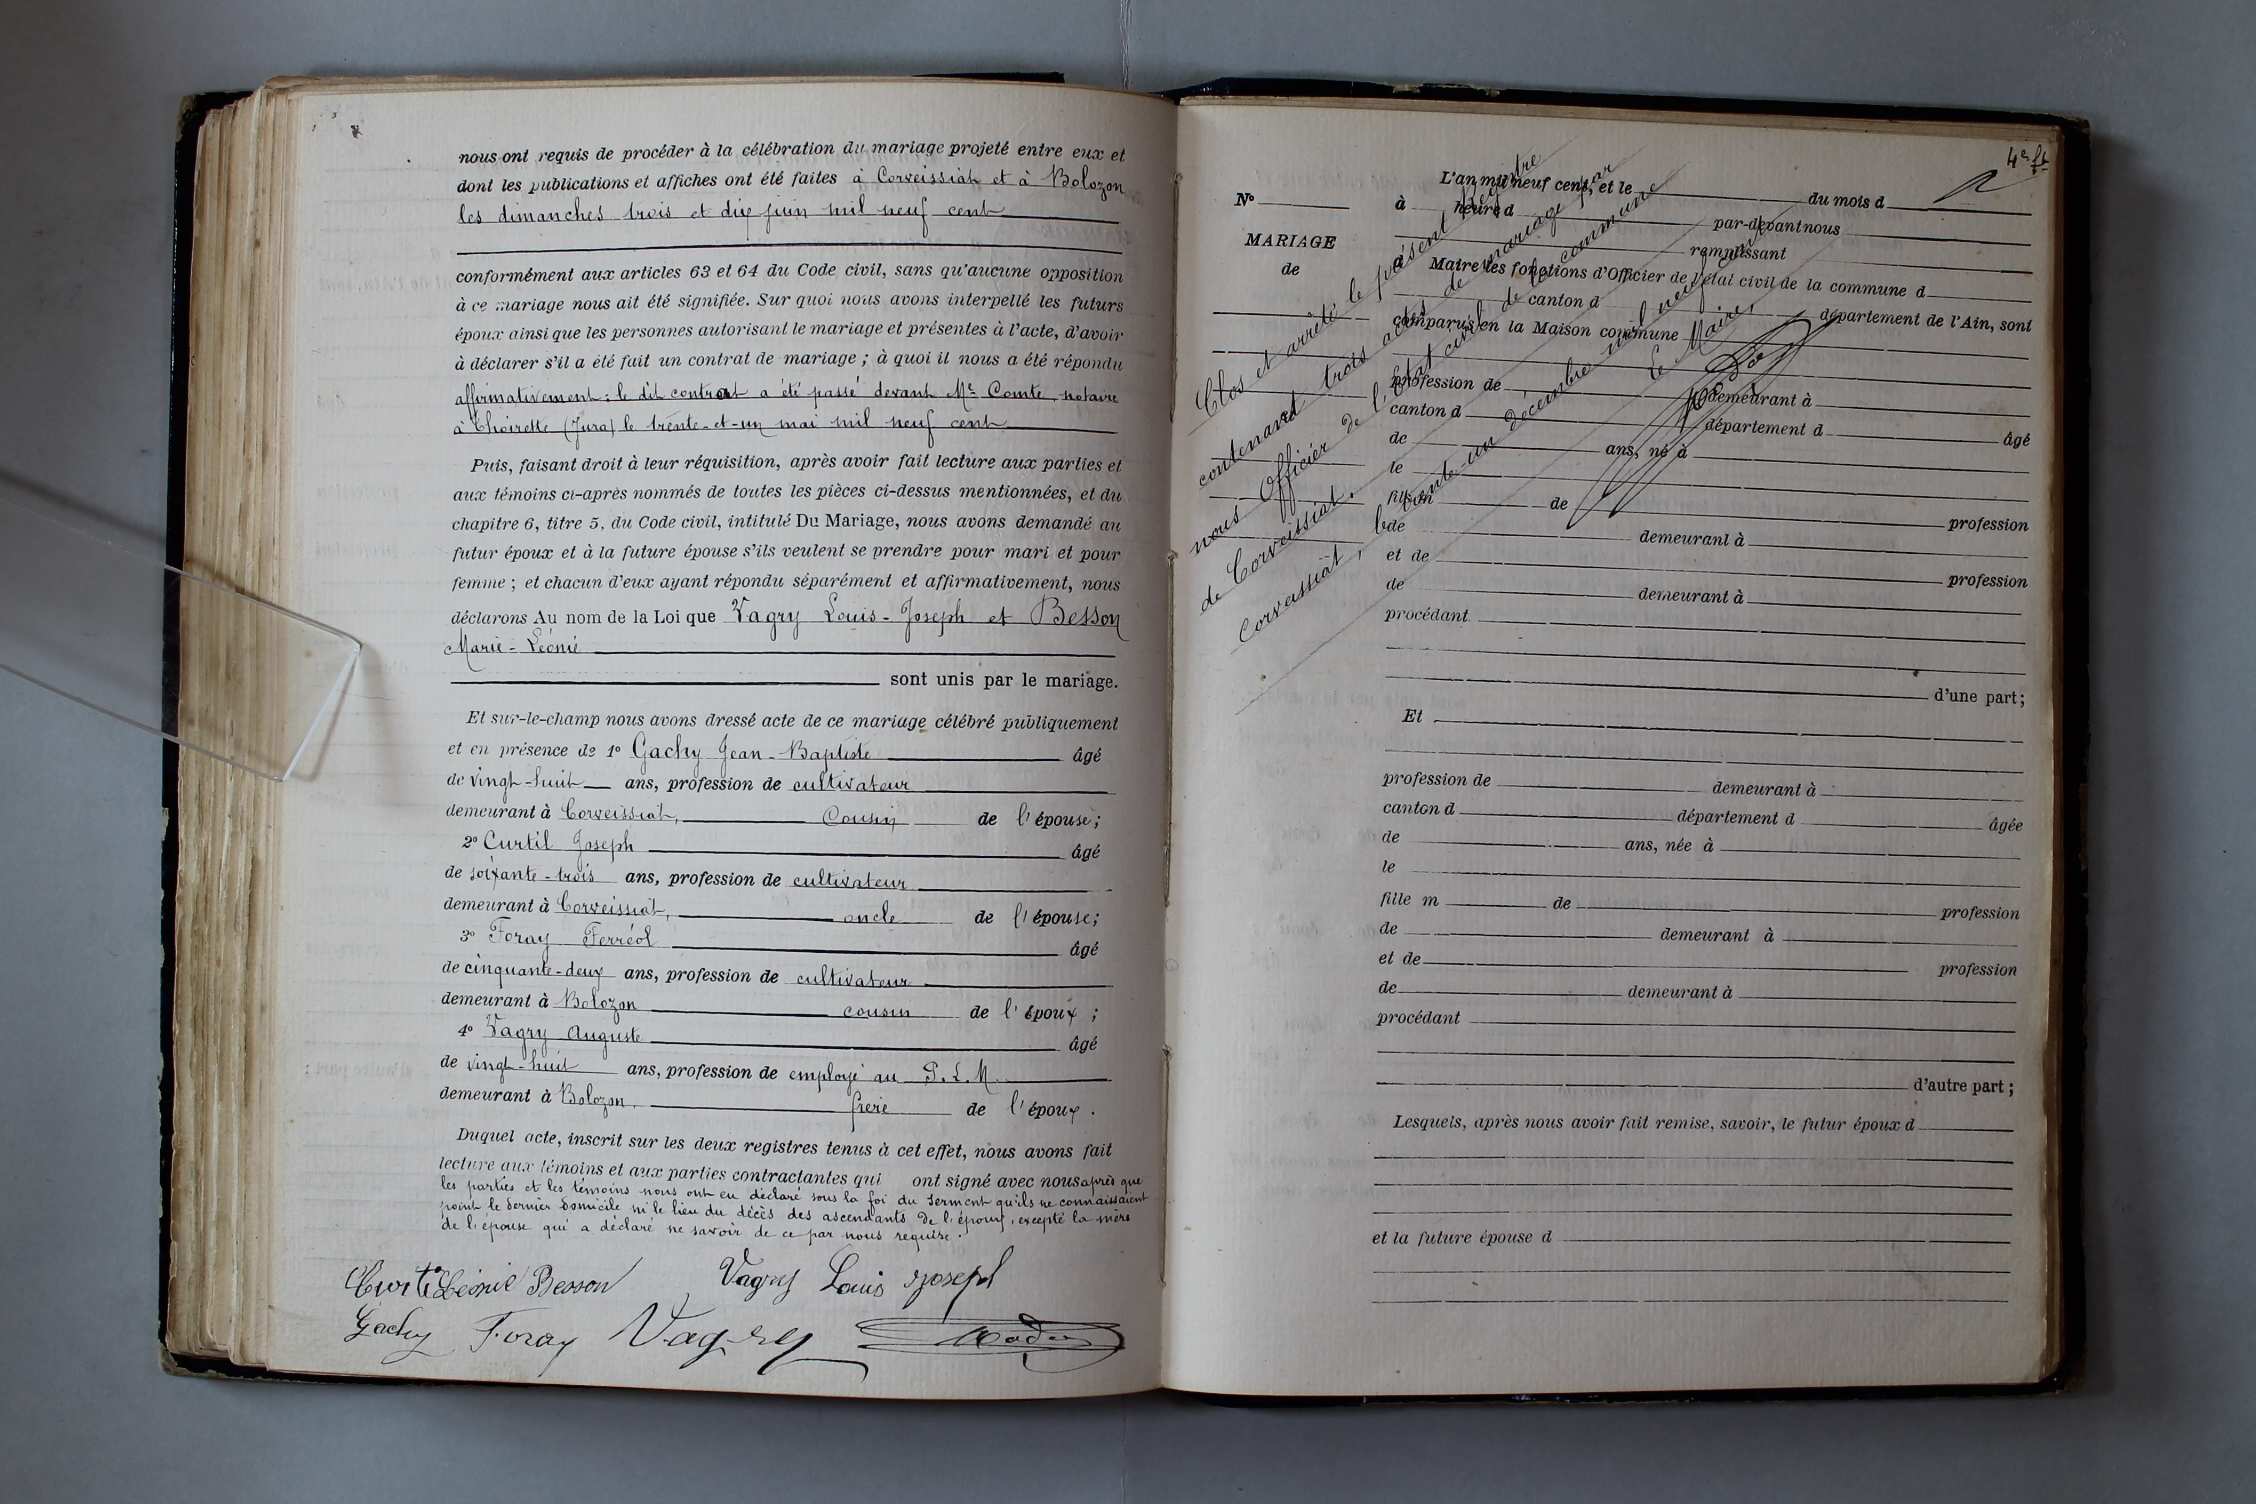 nous ont requis de procéder à la célébration du mariage projeté entre eux et
dont les publications et affiches ont été faites à Corveissiat et à Bolozon
les dimanches trois et dix juin mil neuf cent
conformément aux articles 63 et 64 du Code civil, sans qu'aucune opposition
à ce mariage nous ait été signifiée. Sur quoi nous avons interpellé les futurs
époux ainsi que les personnes autorisant le mariage et présentes à l'acte, d'avoir
à déclarer s'il a été fait un contrat de mariage ; à quoi il nous a été répondu
affirmativement : le dit contrat a été passé devant Me Comte notaire
à Thoirette (Jura) le trente-et-un mai mil neuf cent
Puis, faisant droit à leur réquisition, après avoir fait lecture aux parties et
aux témoins ci-après nommés de toutes les pièces ci-dessus mentionnées, et du
chapitre 6, titre 5, du Code civil, intitulé Du Mariage, nous avons demandé au
futur époux et à la future épouse s'ils veulent se prendre pour mari et pour
femme ; et chacun d'eux ayant répondu séparément et affirmativement, nous
déclarons Au nom de la Loi que Vagry Louis-Joseph et Besson
Marie-Léonie
sont unis par le mariage.
Et sur-le-champ nous avons dressé acte de ce mariage célébré publiquement
et en présence de 1º Gachy Jean-Baptiste âgé
de vingt-huit ans, profession de cultivateur
demeurant à Corveissiat, Cousin de l'épouse;
2º Curtil Joseph âgé
de soixante-trois ans, profession de cultivateur
demeurant à Corveissiat, oncle de l'épouse;
3º Foray Ferréol âgé
de cinquante-deux ans, profession de cultivateur
demeurant à Bolozon cousin de l'époux ;
4º Vagry Auguste âgé
de vingt-huit ans, profession de employé au P.L.M.
demeurant à Bolozon, frère de l'époux.
Duquel acte, inscrit sur les deux registres tenus à cet effet, nous avons fait
lecture aux témoins et aux parties contractantes qui ont signé avec nous après que
les parties et les témoins nous ont eu déclaré sous la foi du serment qu'ils ne connaissaient
point le dernier domicile ni le lieu du décès des ascendants de l'époux, excepté la mère
de l'épouse qui a déclaré ne savoir de ce par nous requise.
Curtil Léonie Besson Vagry Louis Joseph
Gachy Foray Vagry
4e ft
Nº
MARIAGE
de
L'an mil neuf cent, et le du mois d
à heure d par-devant nous
remplissant
Maire les fonctions d'Officier de l'état civil de la commune d
canton d département de l'Ain, sont
comparus en la Maison commune
profession de demeurant à
canton d département d âgé
de ans, né à
le
fils m de profession
de demeurant à
et de profession
de demeurant à
procédant
d'une part;
Et
profession de demeurant à
canton d département d âgée
de ans, née à
le
fille m de profession
de demeurant à
et de profession
de demeurant à
procédant
d'autre part ;
Lesquels, après nous avoir fait remise, savoir, le futur époux d
et la future épouse d
Clos et arrêté le présent registre
contenant trois actes de mariage par
nous Officier de l'état civil de la commune
de Corveissiat.
Corveissiat, le trente-un décembre mil neuf cent
Le Maire,